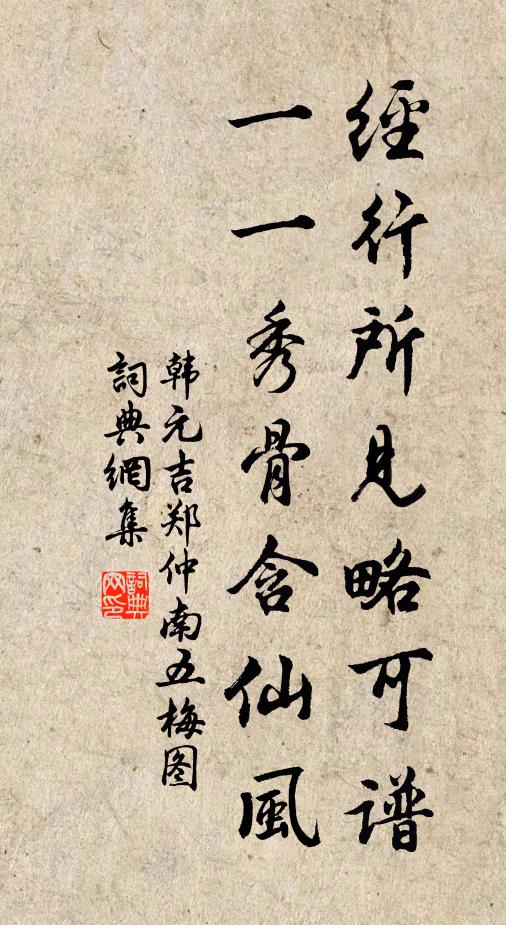 經行所見略可譜
一一秀骨含仙風
韩元吉郑仲南五梅图
詞典網集
詞典
网印